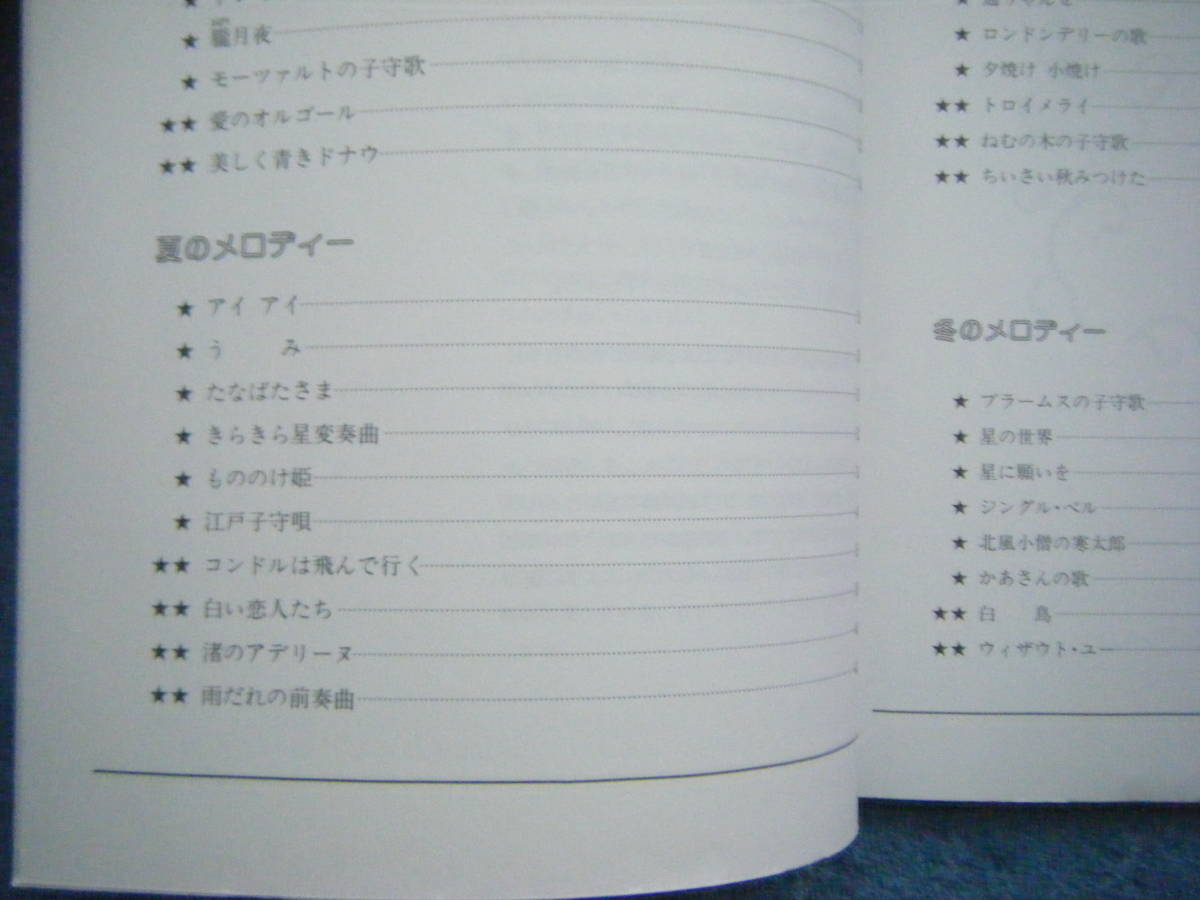 ★ 朧月夜
★ モーツァルトの子守歌
★★ 愛のオルゴール
★★ 美しく青きドナウ
夏のメロディー
★ アイ アイ
★ う み
★ たなばたさま
★ きらきら星変奏曲
★ もののけ姫
★ 江戸子守唄
★★ コンドルは飛んで行く
★★ 白い恋人たち
★★ 渚のアデリーヌ
★★ 雨だれの前奏曲
★ ロンドンデリーの歌
★ 夕焼け 小焼け
★★ トロイメライ
★★ ねむの木の子守歌
★★ ちいさい秋みつけた
冬のメロディー
★ ブラームスの子守歌
★ 星の世界
★ 星に願いを
★ ジングル・ベル
★ 北風小僧の寒太郎
★ かあさんの歌
★★ 白 鳥
★★ ウィザウト・ユー